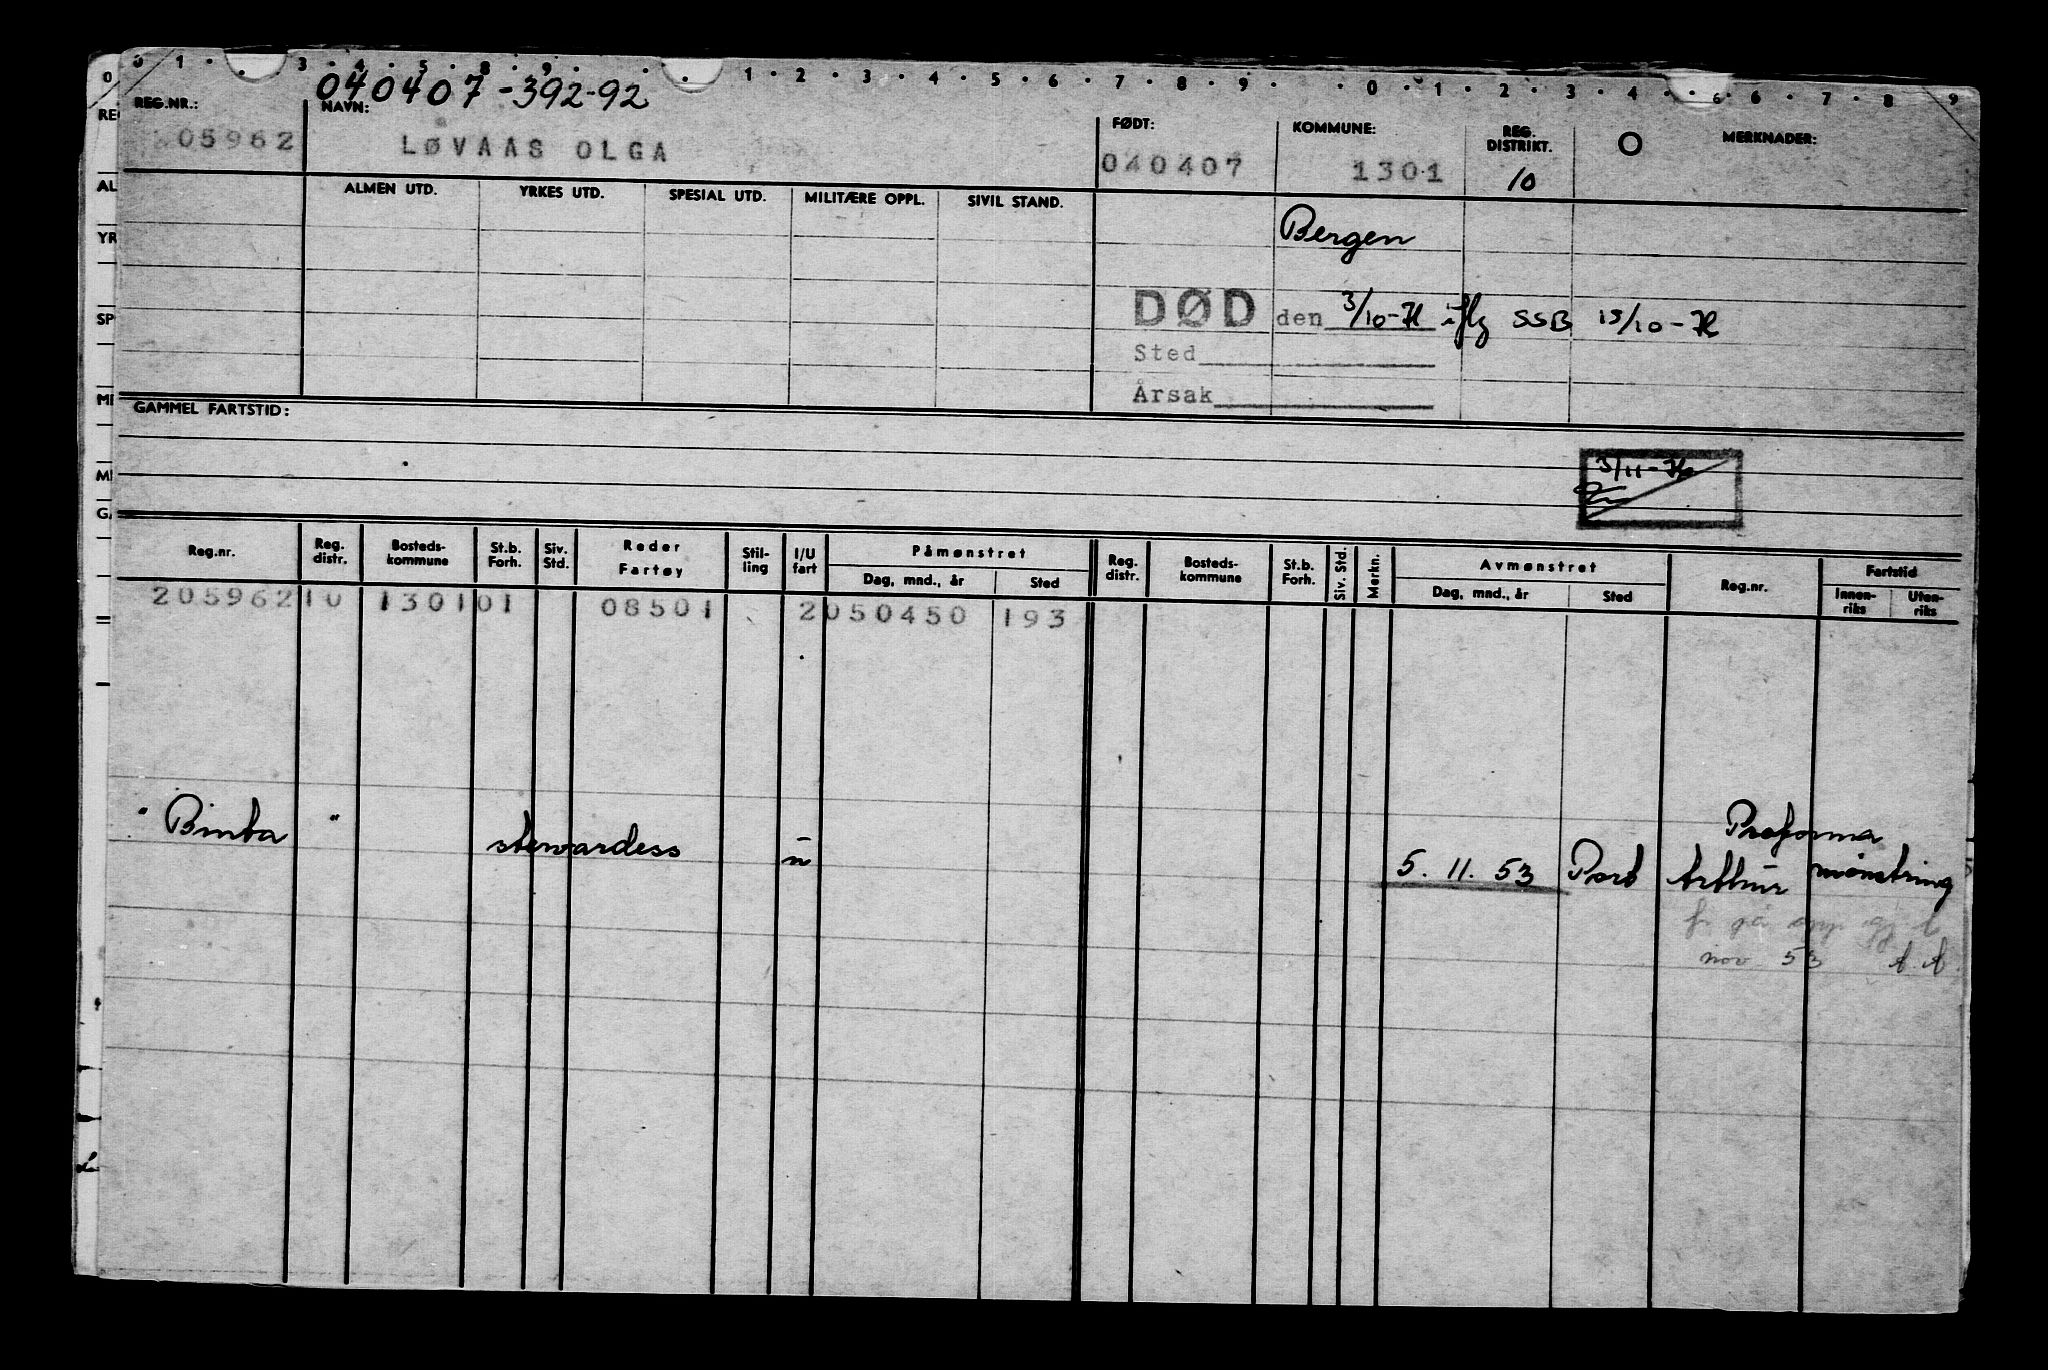 0 1 3 4 5 8 9 1 2 3 4 5 6 7 8 9 0 1 2 3 4 6 6 7 8 9
040407-392-92
REG.NR.: NAVN: FØDT: KOMMUNE: REG. DISTRIKT. MERKNADER:
05962 LØVAAS OLGA 040407 1301 10
ALMEN UTD. YRKES UTD. SPESIAL UTD. MILITÆRE OPPL. SIVIL STAND.
Bergen
DØD den 3/10- iflg SSB 13/10-
Sted
Årsak
GAMMEL FARTSTID:
3/11-
Reg.nr. Reg. distr. Bosteds-kommune St.b. Forh. Siv. Std. Reder Fartøy Stil-ling I/U fart Påmønstret Dag, mnd., år Sted Reg. distr. Bosteds-kommune St.b. Forh. Siv. Std. Merkn. Avmønstret Dag, mnd., år Sted Reg.nr. Fartstid Innen-riks Uten-riks
205962 10 1301 01 08501 2 050450 193
"Binta" stewardess u 5. 11. 53 Port Arthur Proforma mønstring
nov 53 A.A.